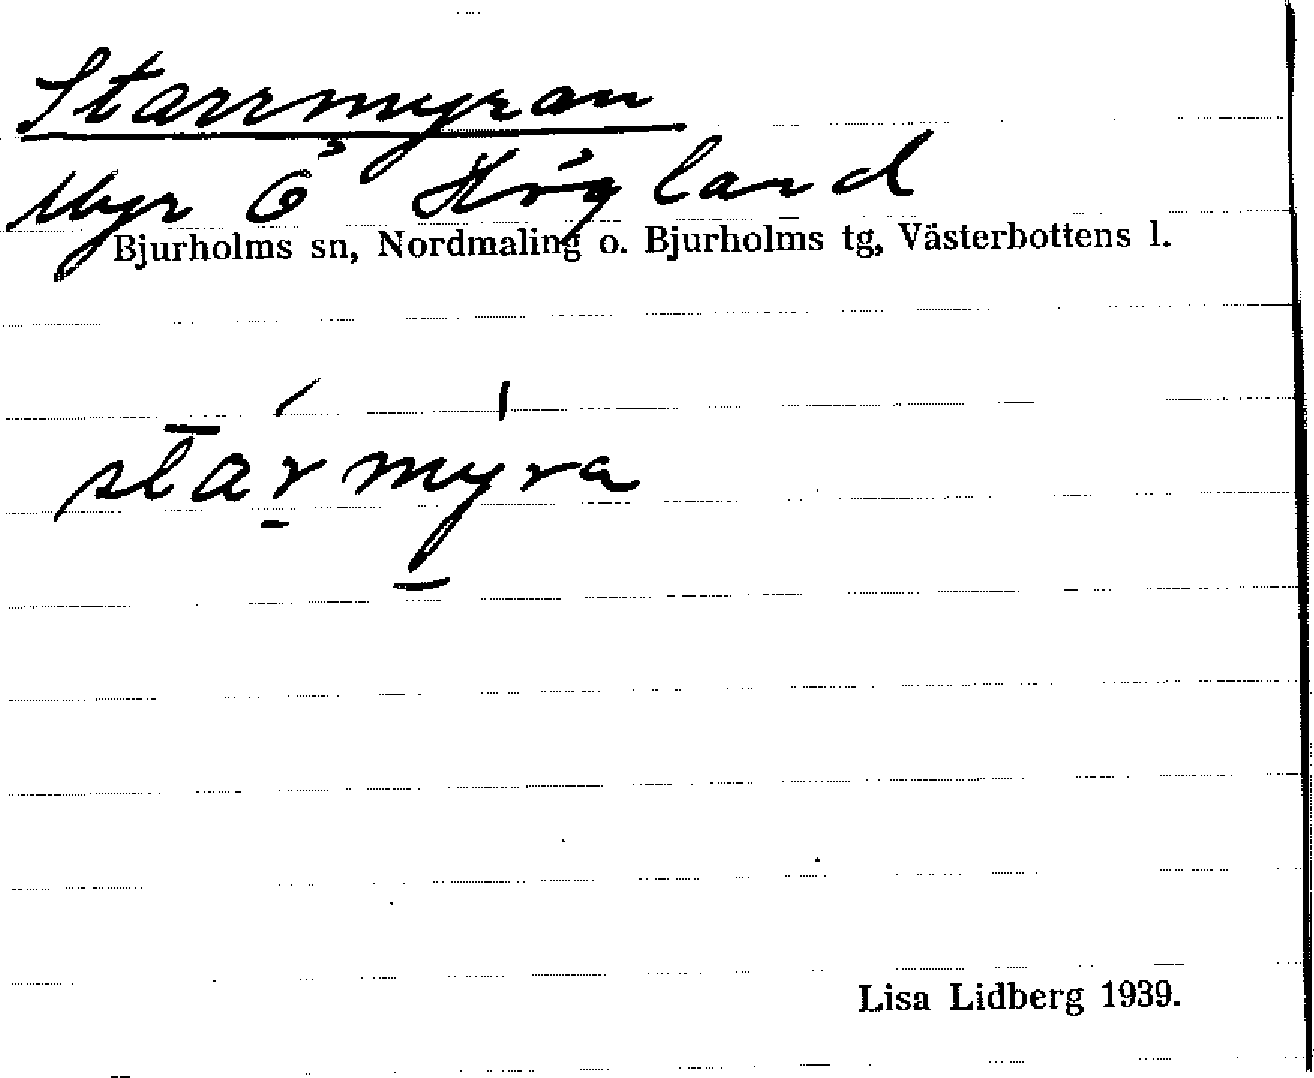 Starrmyran
Myr Ö Högland
Bjurholms sn, Nordmaling o. Bjurholms tg, Västerbottens l.
starmyra
Lisa Lidberg 1939.